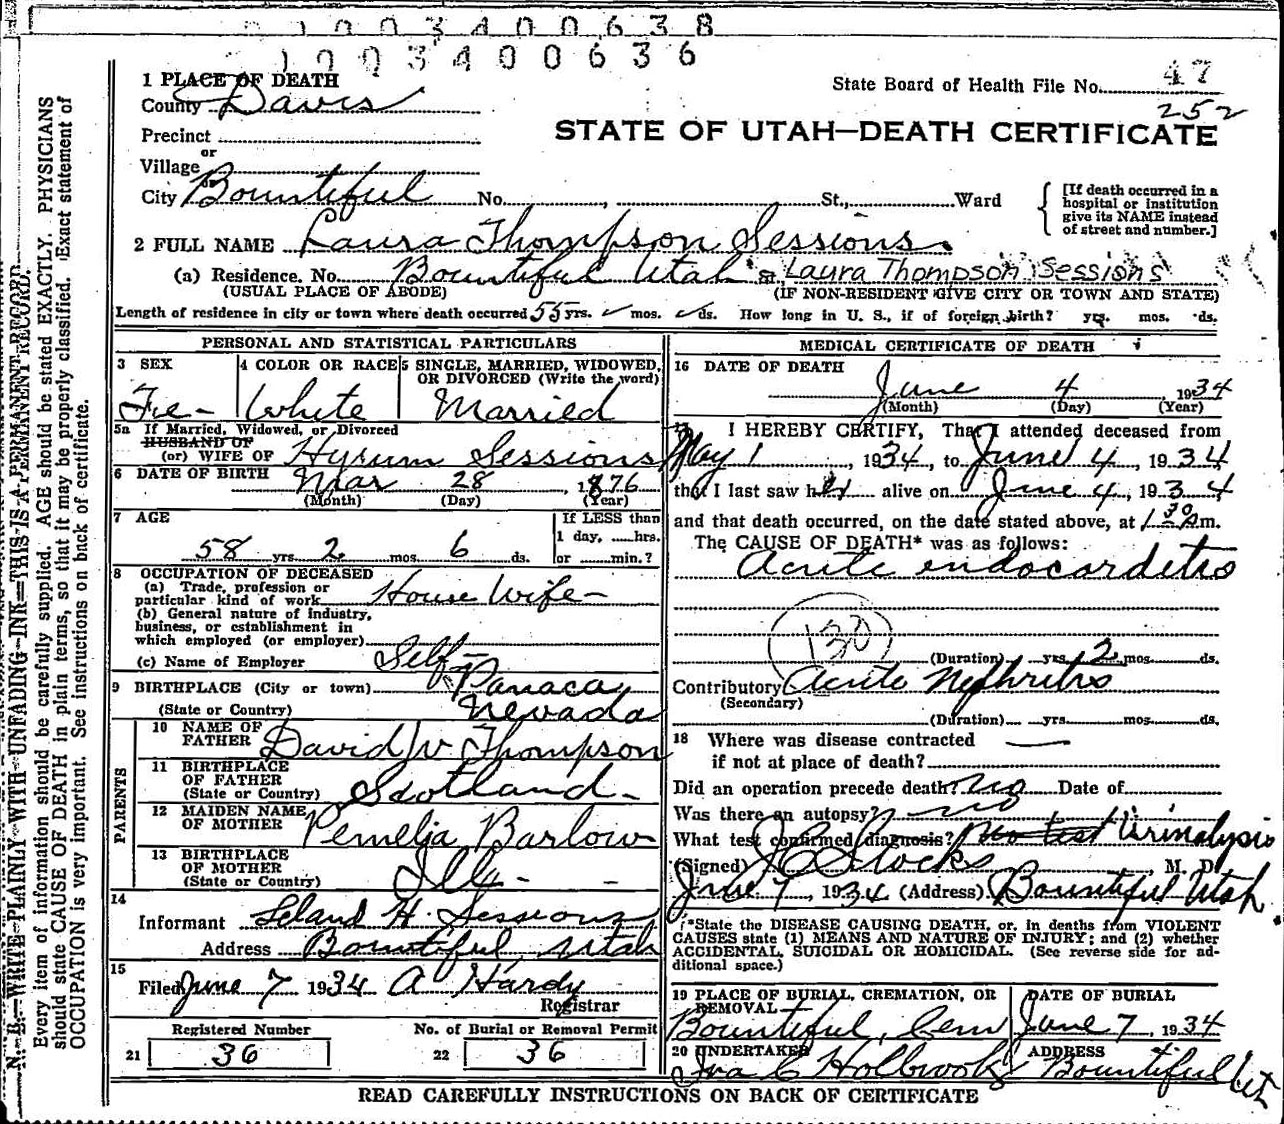 1003400638
1003400636
1 PLACE OF DEATH
State Board of Health File No. 47
County Davis
252
STATE OF UTAH—DEATH CERTIFICATE
Precinct
or
Village
or
City Bountiful No. , St., Ward
[If death occurred in a hospital or institution give its NAME instead of street and number.]
2 FULL NAME Laura Thompson Sessions.
(a) Residence. No. Bountiful Utah St., Laura Thompson Sessions
(USUAL PLACE OF ABODE) (IF NON-RESIDENT GIVE CITY OR TOWN AND STATE)
Length of residence in city or town where death occurred 55 yrs. mos. ds. How long in U. S., if of foreign birth? yrs. mos. ds.
PERSONAL AND STATISTICAL PARTICULARS
3 SEX 4 COLOR OR RACE 5 SINGLE, MARRIED, WIDOWED, OR DIVORCED (Write the word)
Fe- White Married
5a If Married, Widowed, or Divorced
HUSBAND OF
(or) WIFE OF Hyrum Sessions
6 DATE OF BIRTH Mar 28, 1876
(Month) (Day) (Year)
7 AGE
58 yrs. 2 mos. 6 ds.
If LESS than
1 day, hrs.
or min.?
8 OCCUPATION OF DECEASED
(a) Trade, profession or
particular kind of work House Wife-
(b) General nature of industry,
business, or establishment in
which employed (or employer)
(c) Name of Employer Self-
9 BIRTHPLACE (City or town) Panaca
(State or Country) Nevada
PARENTS
10 NAME OF FATHER David W Thompson
11 BIRTHPLACE OF FATHER (State or Country) Scotland-
12 MAIDEN NAME OF MOTHER Pemelia Barlow
13 BIRTHPLACE OF MOTHER (State or Country) Ills- -
14
Informant Leland H. Sessions
Address Bountiful, Utah
15
Filed June 7 1934 A Hardy
Registrar
Registered Number No. of Burial or Removal Permit
21 36 22 36
MEDICAL CERTIFICATE OF DEATH
16 DATE OF DEATH
June 4 1934
(Month) (Day) (Year)
17 I HEREBY CERTIFY, That I attended deceased from
May 1, 1934, to June 4, 1934
that I last saw her alive on June 4, 1934
and that death occurred, on the date stated above, at 1 30 A m.
The CAUSE OF DEATH* was as follows:
Acute endocarditis
130
(Duration) yrs. 2 mos. ds.
Contributory Acute Nephritis
(Secondary)
(Duration) yrs. mos. ds.
18 Where was disease contracted —
if not at place of death?
Did an operation precede death? no Date of
Was there an autopsy? no
What test confirmed diagnosis? No test Urinalysis
(Signed) J C Stocks M. D.
June 7, 1934 (Address) Bountiful Utah.
*State the DISEASE CAUSING DEATH, or, in deaths from VIOLENT
CAUSES state (1) MEANS AND NATURE OF INJURY; and (2) whether
ACCIDENTAL, SUICIDAL OR HOMICIDAL. (See reverse side for ad-
ditional space.)
19 PLACE OF BURIAL, CREMATION, OR REMOVAL DATE OF BURIAL
Bountiful, Cem June 7, 1934
20 UNDERTAKER ADDRESS
Ira C Holbrook Bountiful Ut
READ CAREFULLY INSTRUCTIONS ON BACK OF CERTIFICATE
N. B.—WRITE PLAINLY WITH UNFADING INK—THIS IS A PERMANENT RECORD.
Every item of information should be carefully supplied. AGE should be stated EXACTLY. PHYSICIANS
should state CAUSE OF DEATH in plain terms, so that it may be properly classified. Exact statement of
OCCUPATION is very important. See instructions on back of certificate.